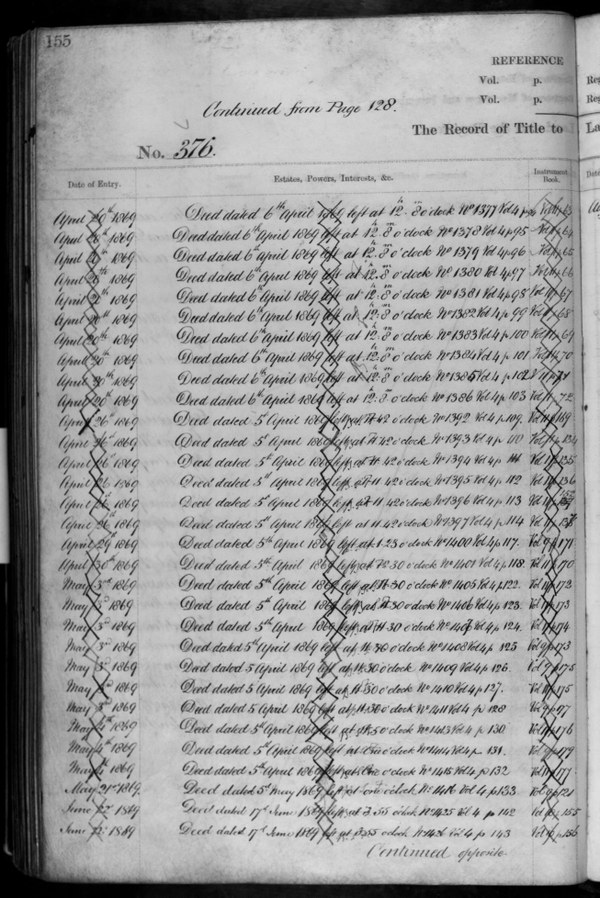 155
REFERENCE
Vol. p.
Vol. p.
Continued from Page 128.
The Record of Title to La
No. 376.
Date of Entry. Estates, Powers, Interests, &c. Instrument Book.
April 20th 1869 Deed dated 6th April 1869 left at 12.8 o'clock No 1377 Vol 4 p
April 20th 1869 Deed dated 6th April 1869 left at 12.8 o'clock No 1378 Vol 4 p 95 Vol p 64
April 20th 1869 Deed dated 6th April 1869 left at 12.8 o'clock No 1379 Vol 4 p 96 Vol p 65
April 20th 1869 Deed dated 6th April 1869 left at 12.8 o'clock No 1380 Vol 4 p 97 Vol p 66
April 20th 1869 Deed dated 6th April 1869 left at 12.8 o'clock No 1381 Vol 4 p 98 Vol p 67
April 20th 1869 Deed dated 6th April 1869 left at 12.8 o'clock No 1382 Vol 4 p 99 Vol p 68
April 20th 1869 Deed dated 6th April 1869 left at 12.8 o'clock No 1383 Vol 4 p 100 Vol p 69
April 20th 1869 Deed dated 6th April 1869 left at 12.8 o'clock No 1384 Vol 4 p 101 Vol p 70
April 20th 1869 Deed dated 6th April 1869 left at 12.8 o'clock No 1385 Vol 4 p 102
April 20th 1869 Deed dated 6th April 1869 left at 12.8 o'clock No 1386 Vol 4 p 103 Vol 72
April 26th 1869 Deed dated 5th April 1869 left at 11.42 o'clock No 1392 Vol 4 p 109. Vol
April 26th 1869 Deed dated 5th April 1869 left at 11.42 o'clock No 1393 Vol 4 p 110 Vol p 134
April 26 1869 Deed dated 5th April 1869 left at 11.42 o'clock No 1394 Vol 4 p 111 Vol p 135
April 26 1869 Deed dated 5th April 1869 left at 11.42 o'clock No 1395 Vol 4 p 112 Vol p 136
April 26 1869 Deed dated 5th April 1869 left at 11.42 o'clock No 1396 Vol 4 p 113 Vol p
April 26th 1869 Deed dated 5th April 1869 left at 11.42 o'clock No 1397 Vol 4 p 114 Vol p
April 29th 1869 Deed dated 5th April 1869 left at 1.23 o'clock No 1400 Vol 4 p 117. Vol p 171
April 30th 1869 Deed dated 5th April 1869 left at 12.30 o'clock No 1401 Vol 4 p 118. Vol p 170
May 3rd 1869 Deed dated 5th April 1869 left at 11.30 o'clock No 1405 Vol 4 p 122. Vol p 172
May 3rd 1869 Deed dated 5th April 1869 left at 11.30 o'clock No 1406 Vol 4 p 123. Vol p 173
May 3rd 1869 Deed dated 5th April 1869 left at 11.30 o'clock No 1407 Vol 4 p 124. Vol p 174
May 3rd 1869 Deed dated 5th April 1869 left at 11.30 o'clock No 1408 Vol 4 p 125 Vol p 173
May 3rd 1869 Deed dated 5 April 1869 left at 11.30 o'clock No 1409 Vol 4 p 126. Vol p 175
May 3rd 1869 Deed dated 5 April 1869 left at 11.30 o'clock No 1410 Vol 4 p 127. Vol p 175
May 3rd 1869 Deed dated 5 April 1869 left at 11.30 o'clock No 1411 Vol 4 p 128 Vol p 177
May 4th 1869 Deed dated 5th April 1869 left at o'clock No 1413 Vol 4 p 130 Vol p 176
May 4th 1869 Deed dated 5th April 1869 left at One o'clock No 1414 Vol 4 p. 131. Vol p 179
May 4th 1869 Deed dated 5th April 1869 left at One o'clock No 1415 Vol 4 p 132 Vol p 177
May 21st 1869. Deed dated 5th May 1869 left at one o'clock No 1416 Vol 4 p 133 Vol p 121
June 1869 Deed dated 17th June 1869 left at 3.55 o'clock No 1425 Vol 4 p 142 Vol p 155
June 1869 Deed dated 17th June 1869 left at 3.55 o'clock No 1426 Vol 4 p 143 Vol p 156
Continued opposite.